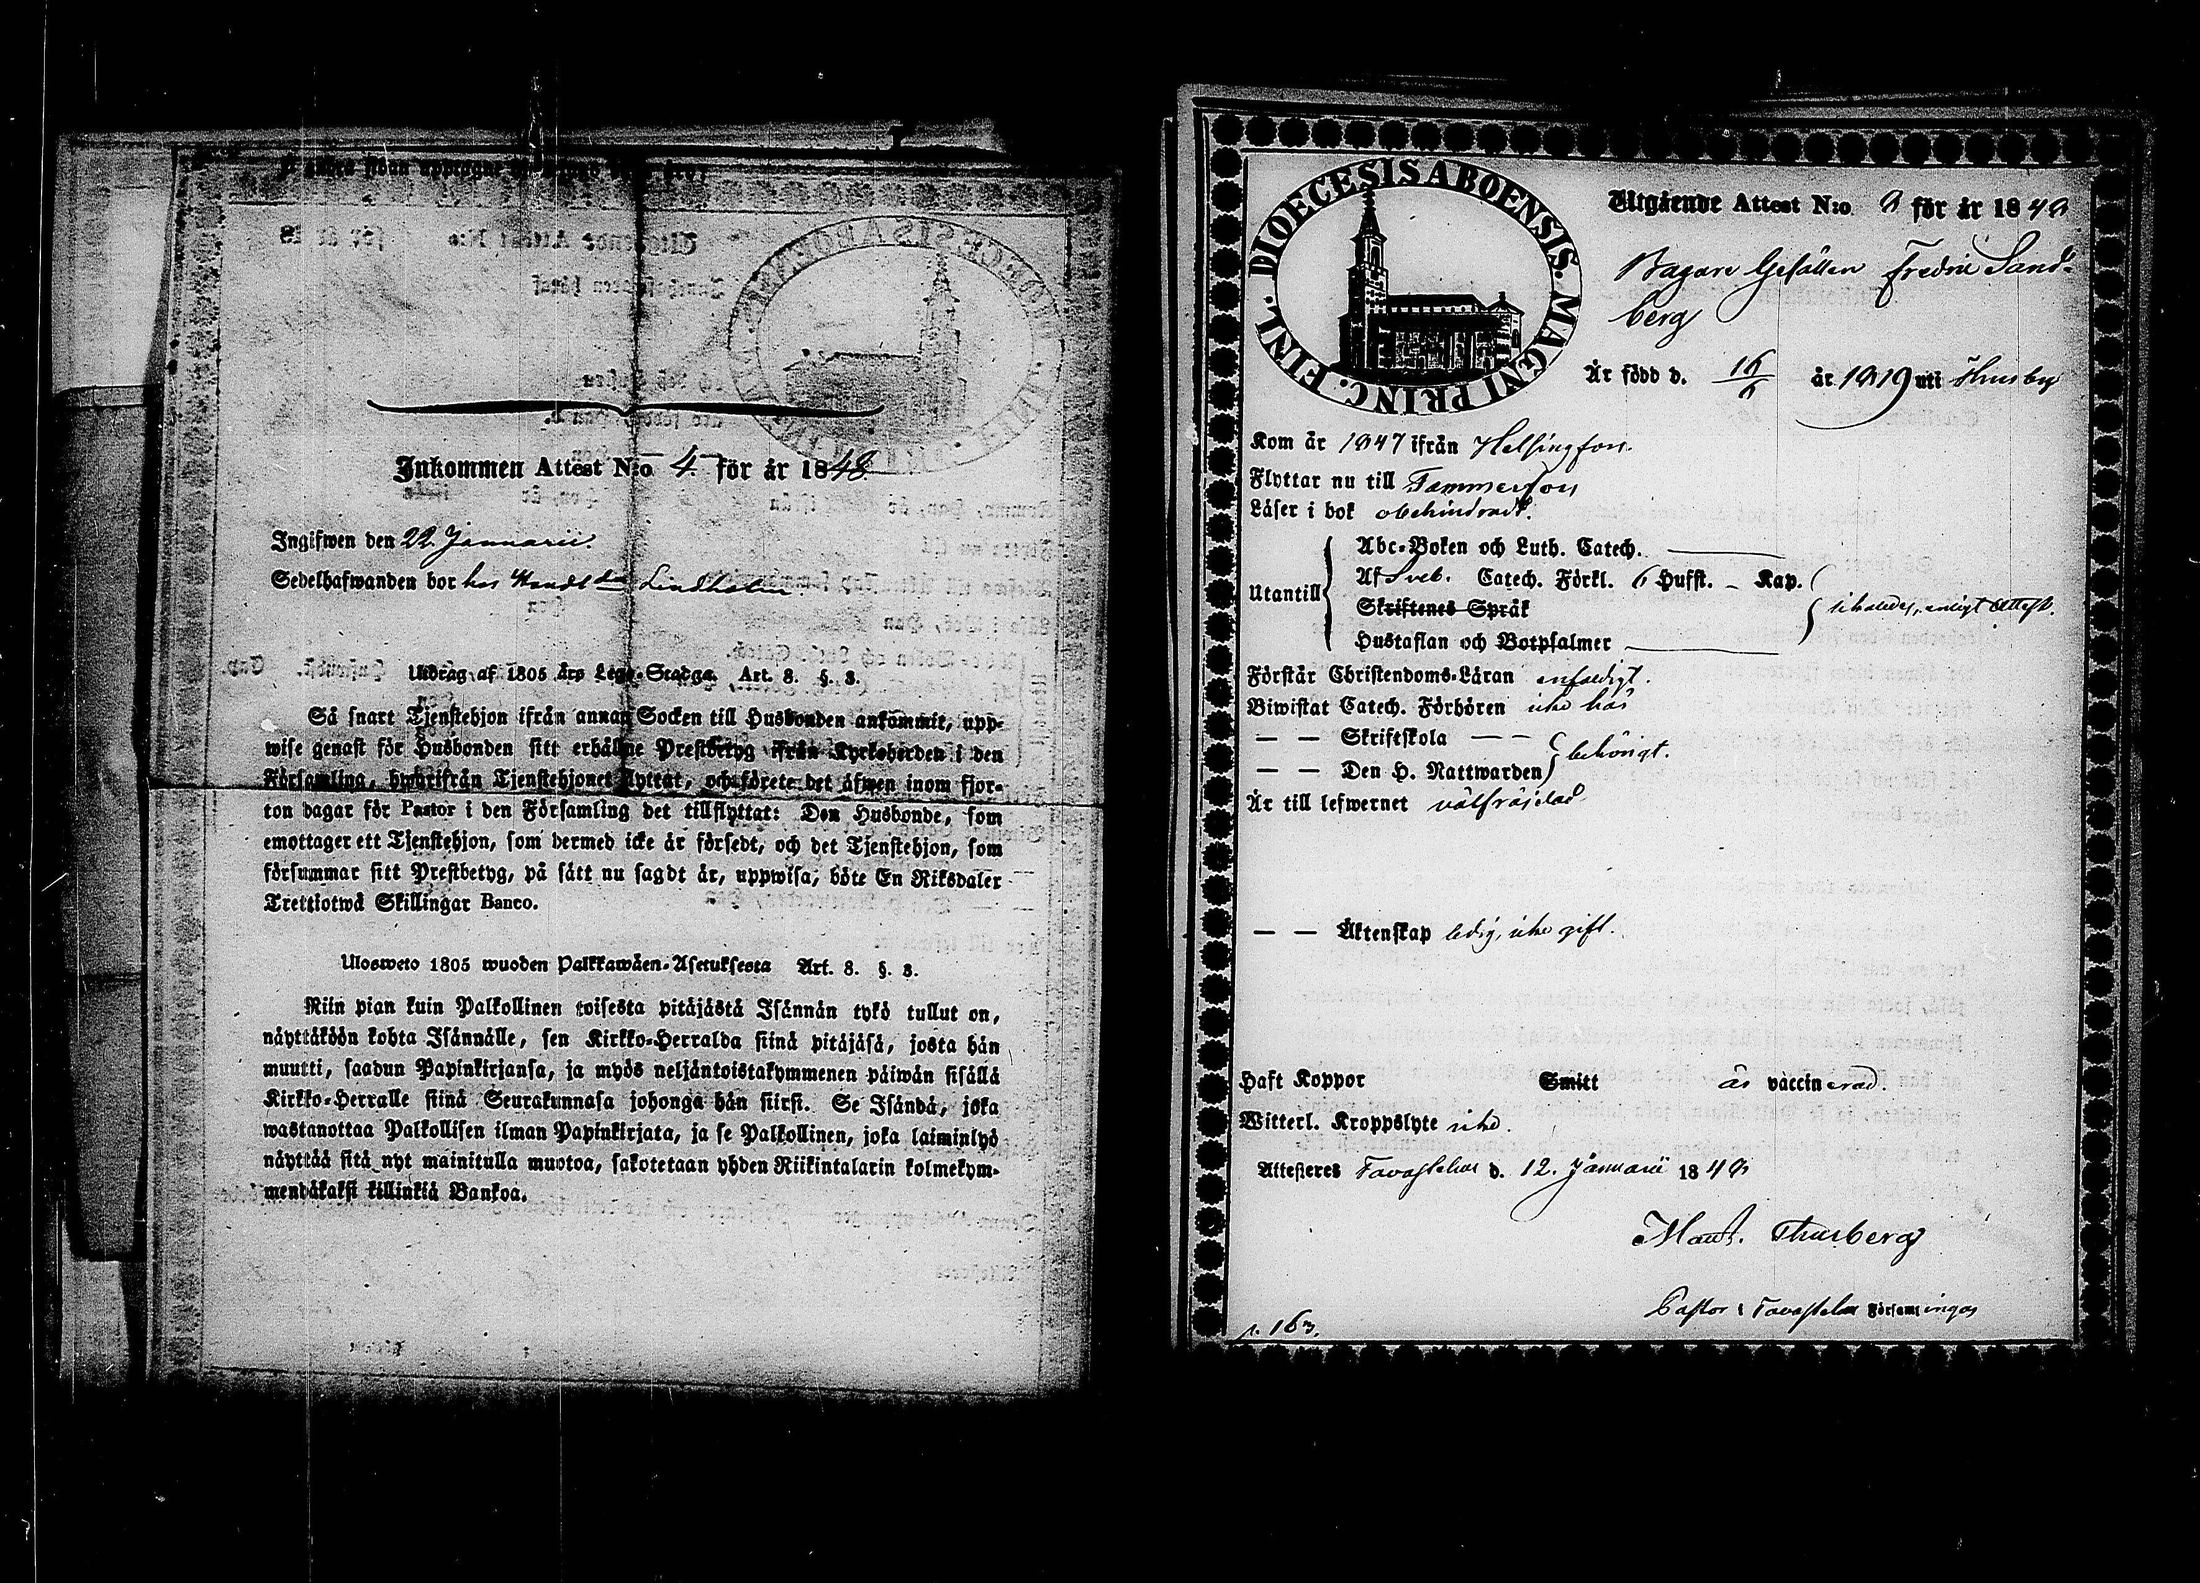 Inkommen Attest N:o 4. för år 1848.
Ingifwen den 22 Januarii.
Sedelhafwanden bor hos Handl. Lindholm
Utdrag af 1805 års Lego-Stadga. Art. 8. §. 3.
Så snart Tjenstehjon ifrån annan Socken till Husbonden ankommit, upp-
wise genast för Husbonden sitt erhållne Prestbetyg ifrån Kyrkoherden i den
Församling, hwarifrån Tjenstehjonet flyttat, och förete det äfwen inom fjor-
ton dagar för Pastor i den Församling det tillflyttat: Den Husbonde, som
emottager ett Tjenstehjon, som dermed icke är försedt, och det Tjenstehjon, som
försummar sitt Prestbetyg, på sätt nu sagdt är, uppwisa, böte En Riksdaler
Trettiotwå Skillingar Banco.
Ulosweto 1805 wuoden Palkkawäen-Asetuksesta Art. 8. §. 3.
Niin pian kuin Palkollinen toisesta pitäjästä Isännän tykö tullut on,
näyttäköön kohta Isännälle, sen Kirkko-Herralda siinä pitäjäsä, josta hän
muutti, saadun Papinkirjansa, ja myös neljäntoistakymmenen päiwän sisällä
Kirkko-Herralle siinä Seurakunnasa johonga hän siirsi. Se Isändä, joka
wastanottaa Palkollisen ilman Papinkirjata, ja se Palkollinen, joka laiminlyö
näyttää sitä nyt mainitulla muotoa, sakotetaan yhden Riikintalarin kolmekym-
mendäkaksi killinkiä Bankoa.
DIOECESIS ABOENSIS. MAGNI PRINC. FINL.
Utgående Attest N:o 8 för år 1848
Bagare Gesällen Fredric Sand-
berg
Är född d. 16/6 år 1819 uti Husby
Kom år 1847 ifrån Helsingfors.
Flyttar nu till Tammerfors
Läser i bok obehindradt.
Utantill
Abc-Boken och Luth. Catech.
Af Sveb. Catech. Förkl. 6 Hufst. – Kap.
Skriftenes Språk
Hustaflan och Botpsalmer
likaledes, enligt Attest.
Förstår Christendoms-Läran enfaldigt.
Biwistat Catech. Förhören icke här
— — Skriftskola — —
— — Den H. Nattwarden
behörigt.
Är till lefwernet välfräjdad.
— — Äktenskap ledig, icke gift.
Haft Koppor Smitt är vaccinerad.
Witterl. Kroppslyte icke.
Attesteres Tavastehus d. 12. Januarii 1848
Maur. Thusberg
Pastor i Tavastehus Församlingar
p. 163.